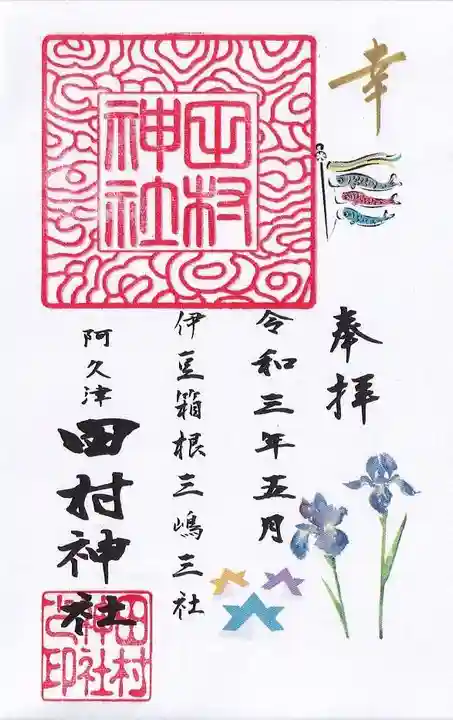 幸
奉拝
令和三年五月
伊豆箱根三嶋三社
田村
神社
阿久津
田村神社
田村
神社
之印